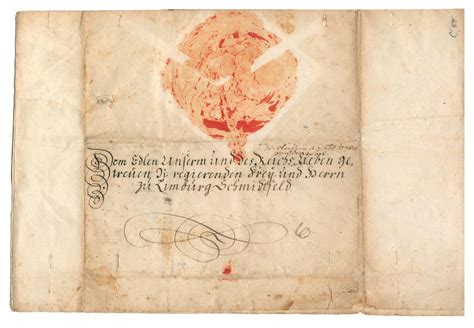 Dem Edlen Unserm und des Reichs Lieben Ge,
treuen, N. regierenden Frey und Herrn
zu Limburg Schmidtfeld